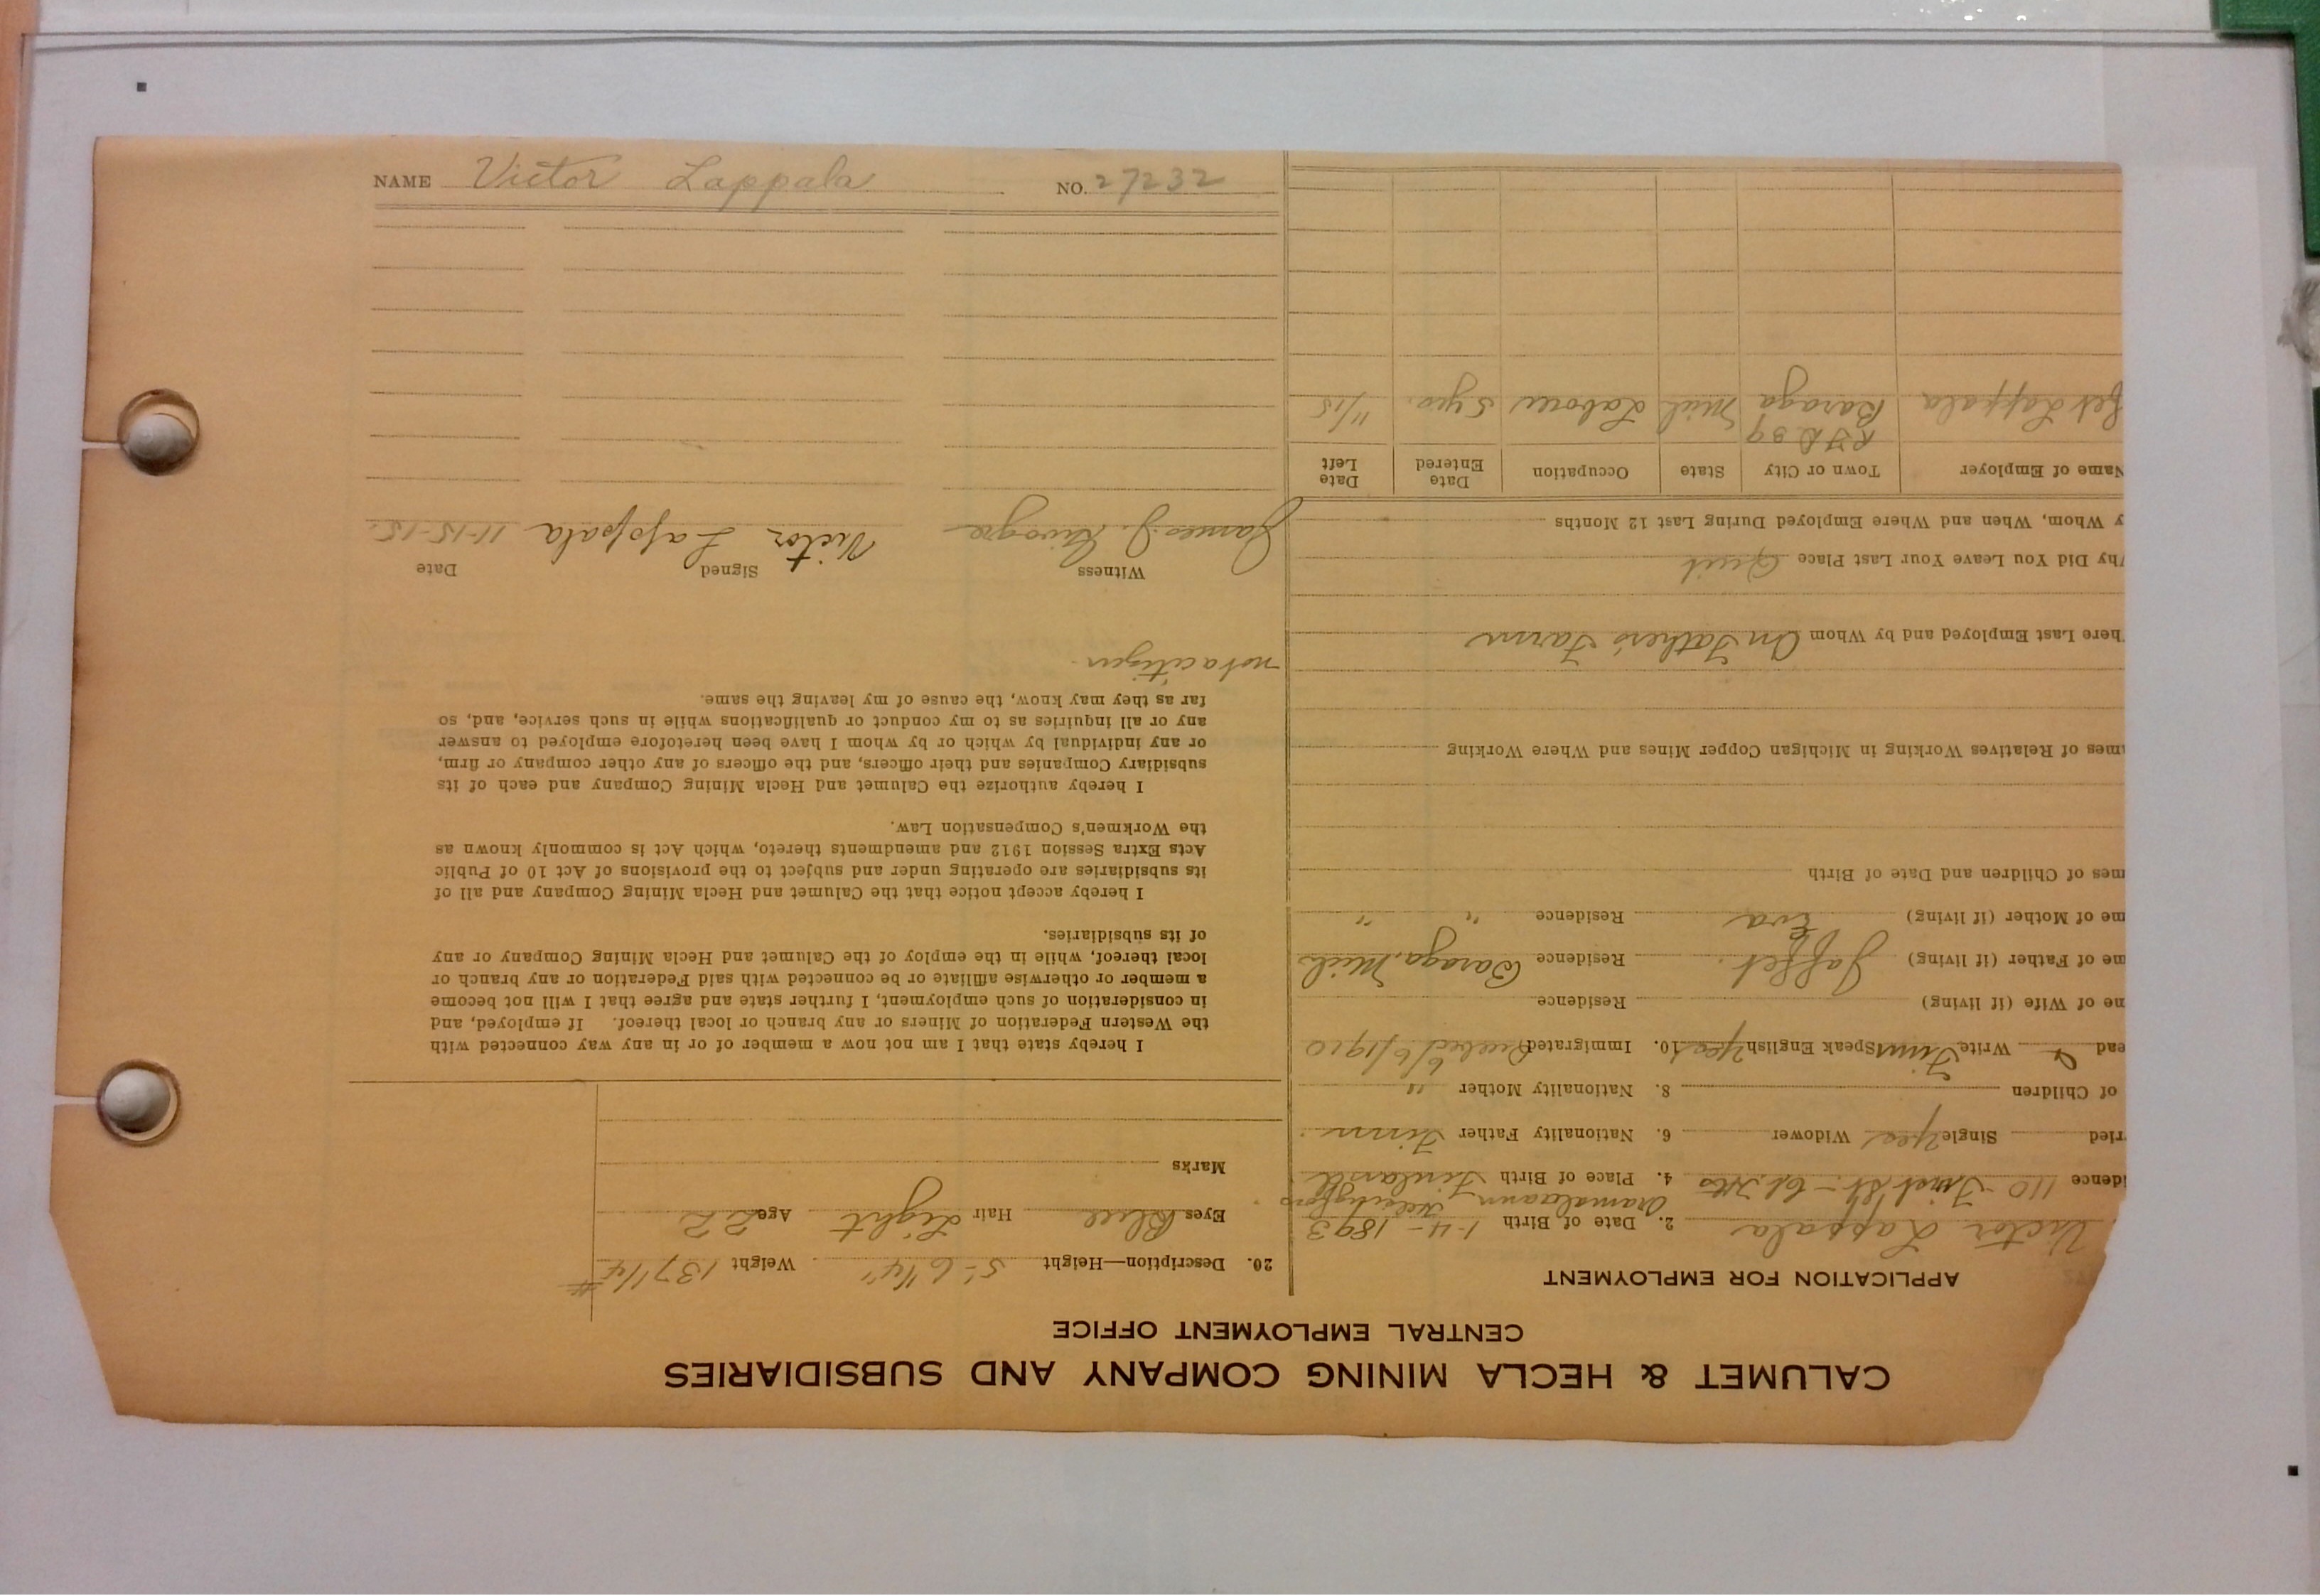 CALUMET & HECLA MINING COMPANY AND SUBSIDIARIES
CENTRAL EMPLOYMENT OFFICE
APPLICATION FOR EMPLOYMENT
Victor Lappala 2. Date of Birth 1-4-1893
idence 110 - First St. - 4. Place of Birth Finland
ried Single Yes Widower 6. Nationality Father Finn
of Children 8. Nationality Mother "
ead Write Finn Speak English Yes 10. Immigrated 6/1910
me of Wife (if living) Residence
me of Father (if living) Jaffet Residence Baraga, Mich
me of Mother (if living) Eva Residence " "
mes of Children and Date of Birth
mes of Relatives Working in Michigan Copper Mines and Where Working
here Last Employed and by Whom On Father's Farm
hy Did You Leave Your Last Place Quit
y Whom, When and Where Employed During Last 12 Months
Name of Employer Town or City State Occupation Date Entered Date Left
Lappala R.F.D. 39 Baraga Mich Laborer 5 yrs. 11/15
20. Description—Height 5'-6 1/4" Weight 137 1/4 #
Eyes Blue Hair Light Age 22
Marks
I hereby state that I am not now a member of or in any way connected with
the Western Federation of Miners or any branch or local thereof. If employed, and
in consideration of such employment, I further state and agree that I will not become
a member or otherwise affiliate or be connected with said Federation or any branch or
local thereof, while in the employ of the Calumet and Hecla Mining Company or any
of its subsidiaries.
I hereby accept notice that the Calumet and Hecla Mining Company and all of
its subsidiaries are operating under and subject to the provisions of Act 10 of Public
Acts Extra Session 1912 and amendments thereto, which Act is commonly known as
the Workmen's Compensation Law.
I hereby authorize the Calumet and Hecla Mining Company and each of its
subsidiary Companies and their officers, and the officers of any other company or firm,
or any individual by which or by whom I have been heretofore employed to answer
any or all inquiries as to my conduct or qualifications while in such service, and, so
far as they may know, the cause of my leaving the same.
not a citizen
Witness Signed Date
James J. Victor Lappala 11-15-15.
NAME Victor Lappala NO. 27232